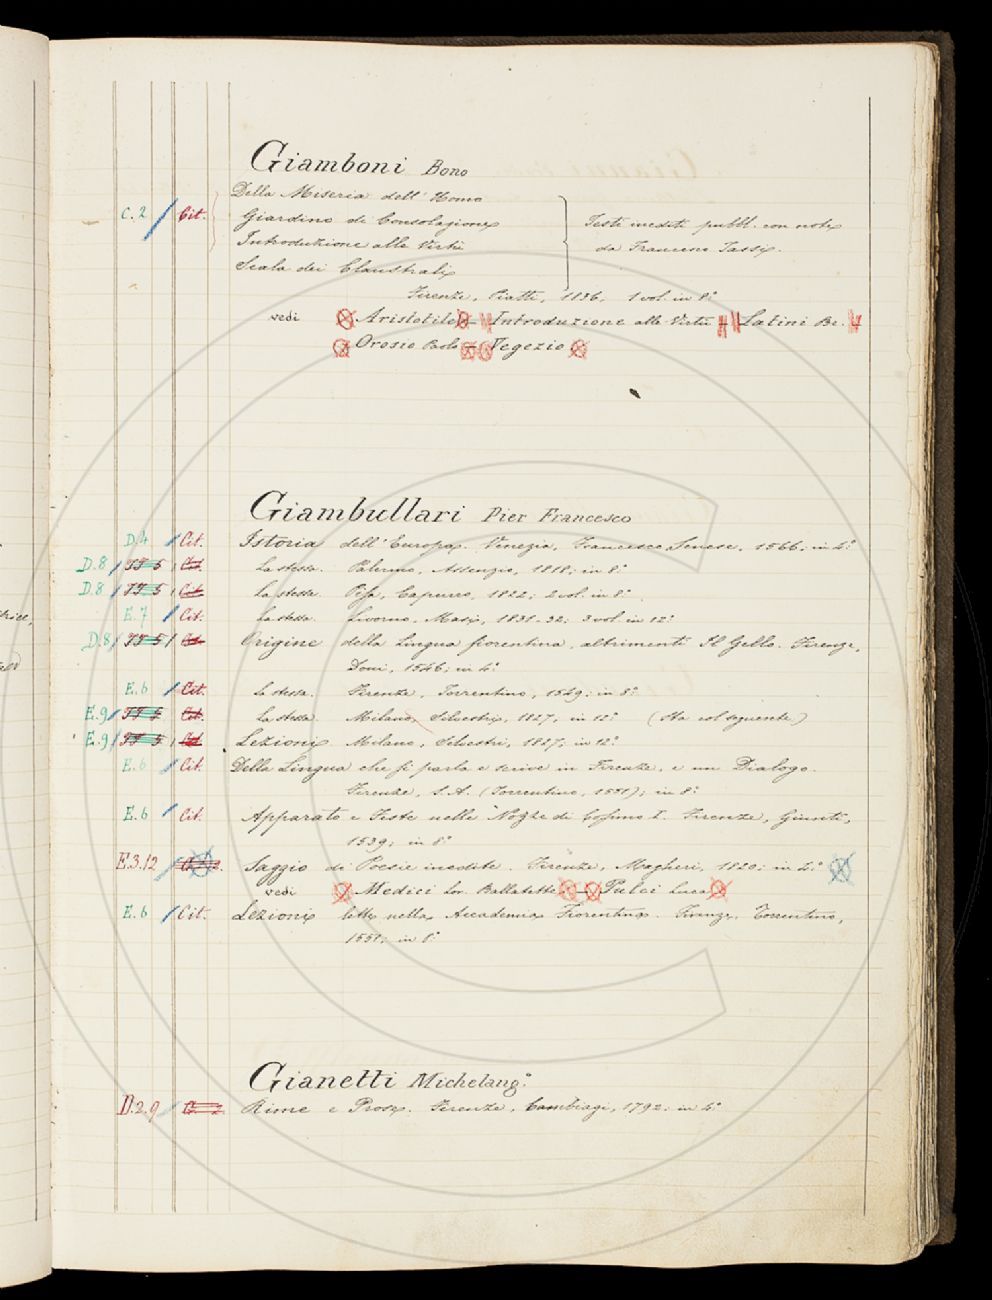 Giamboni Bono
Della Miseria dell' Homo
C. 2 / Cit. Giardino di Consolazione Testi inediti pubbl. con note
Introduzione alle Virtù da Francesco Tassi.
Scala dei Claustrali
Firenze, Piatti, 1836, 1 vol. in 8.°
vedi Aristotile — Introduzione alle Virtù — Latini Br.
Orosio Paolo — Vegezio
Giambullari Pier Francesco
D. 4 / Cit. Istoria dell' Europa. Venezia, Francesco Senese, 1566; in 4.°
D. 8 / Cit. La stessa. Palermo, Assenzio, 1818; in 8.°
D. 8 / Cit. La stessa. Pisa, Capurro, 1822; 2 vol. in 8.°
E. 7 / Cit. La stessa. Livorno, Masi, 1831-32; 3 vol. in 12.°
D. 8 / Cit. Origine della Lingua fiorentina, altrimenti Il Gello. Firenze,
Doni, 1546; in 4.°
E. 6 / Cit. La stessa. Firenze, Torrentino, 1549; in 8.°
E. 9 / Cit. La stessa. Milano, Silvestri, 1827, in 12.° (Sta col seguente)
E. 9 / Cit. Lezioni. Milano, Silvestri, 1827; in 12.°
E. 6 / Cit. Della Lingua che si parla e scrive in Firenze, e un Dialogo.
Firenze, S. A. (Torrentino, 1551); in 8.°
E. 6 / Cit. Apparato e Feste nelle Nozze di Cosimo I. Firenze, Giunti,
1539; in 8.°
E. 3. 12 / Saggio di Poesie inedite. Firenze, Magheri, 1820; in 4.°
vedi Medici Lor. Ballatette — Pulci Luca
E. 6 / Cit. Lezioni lette nella Accademia Fiorentina. Firenze, Torrentino,
1551; in 8.°
Gianetti Michelang.°
D. 2. 9 / Rime e Prose. Firenze, Cambiagi, 1792; in 4.°